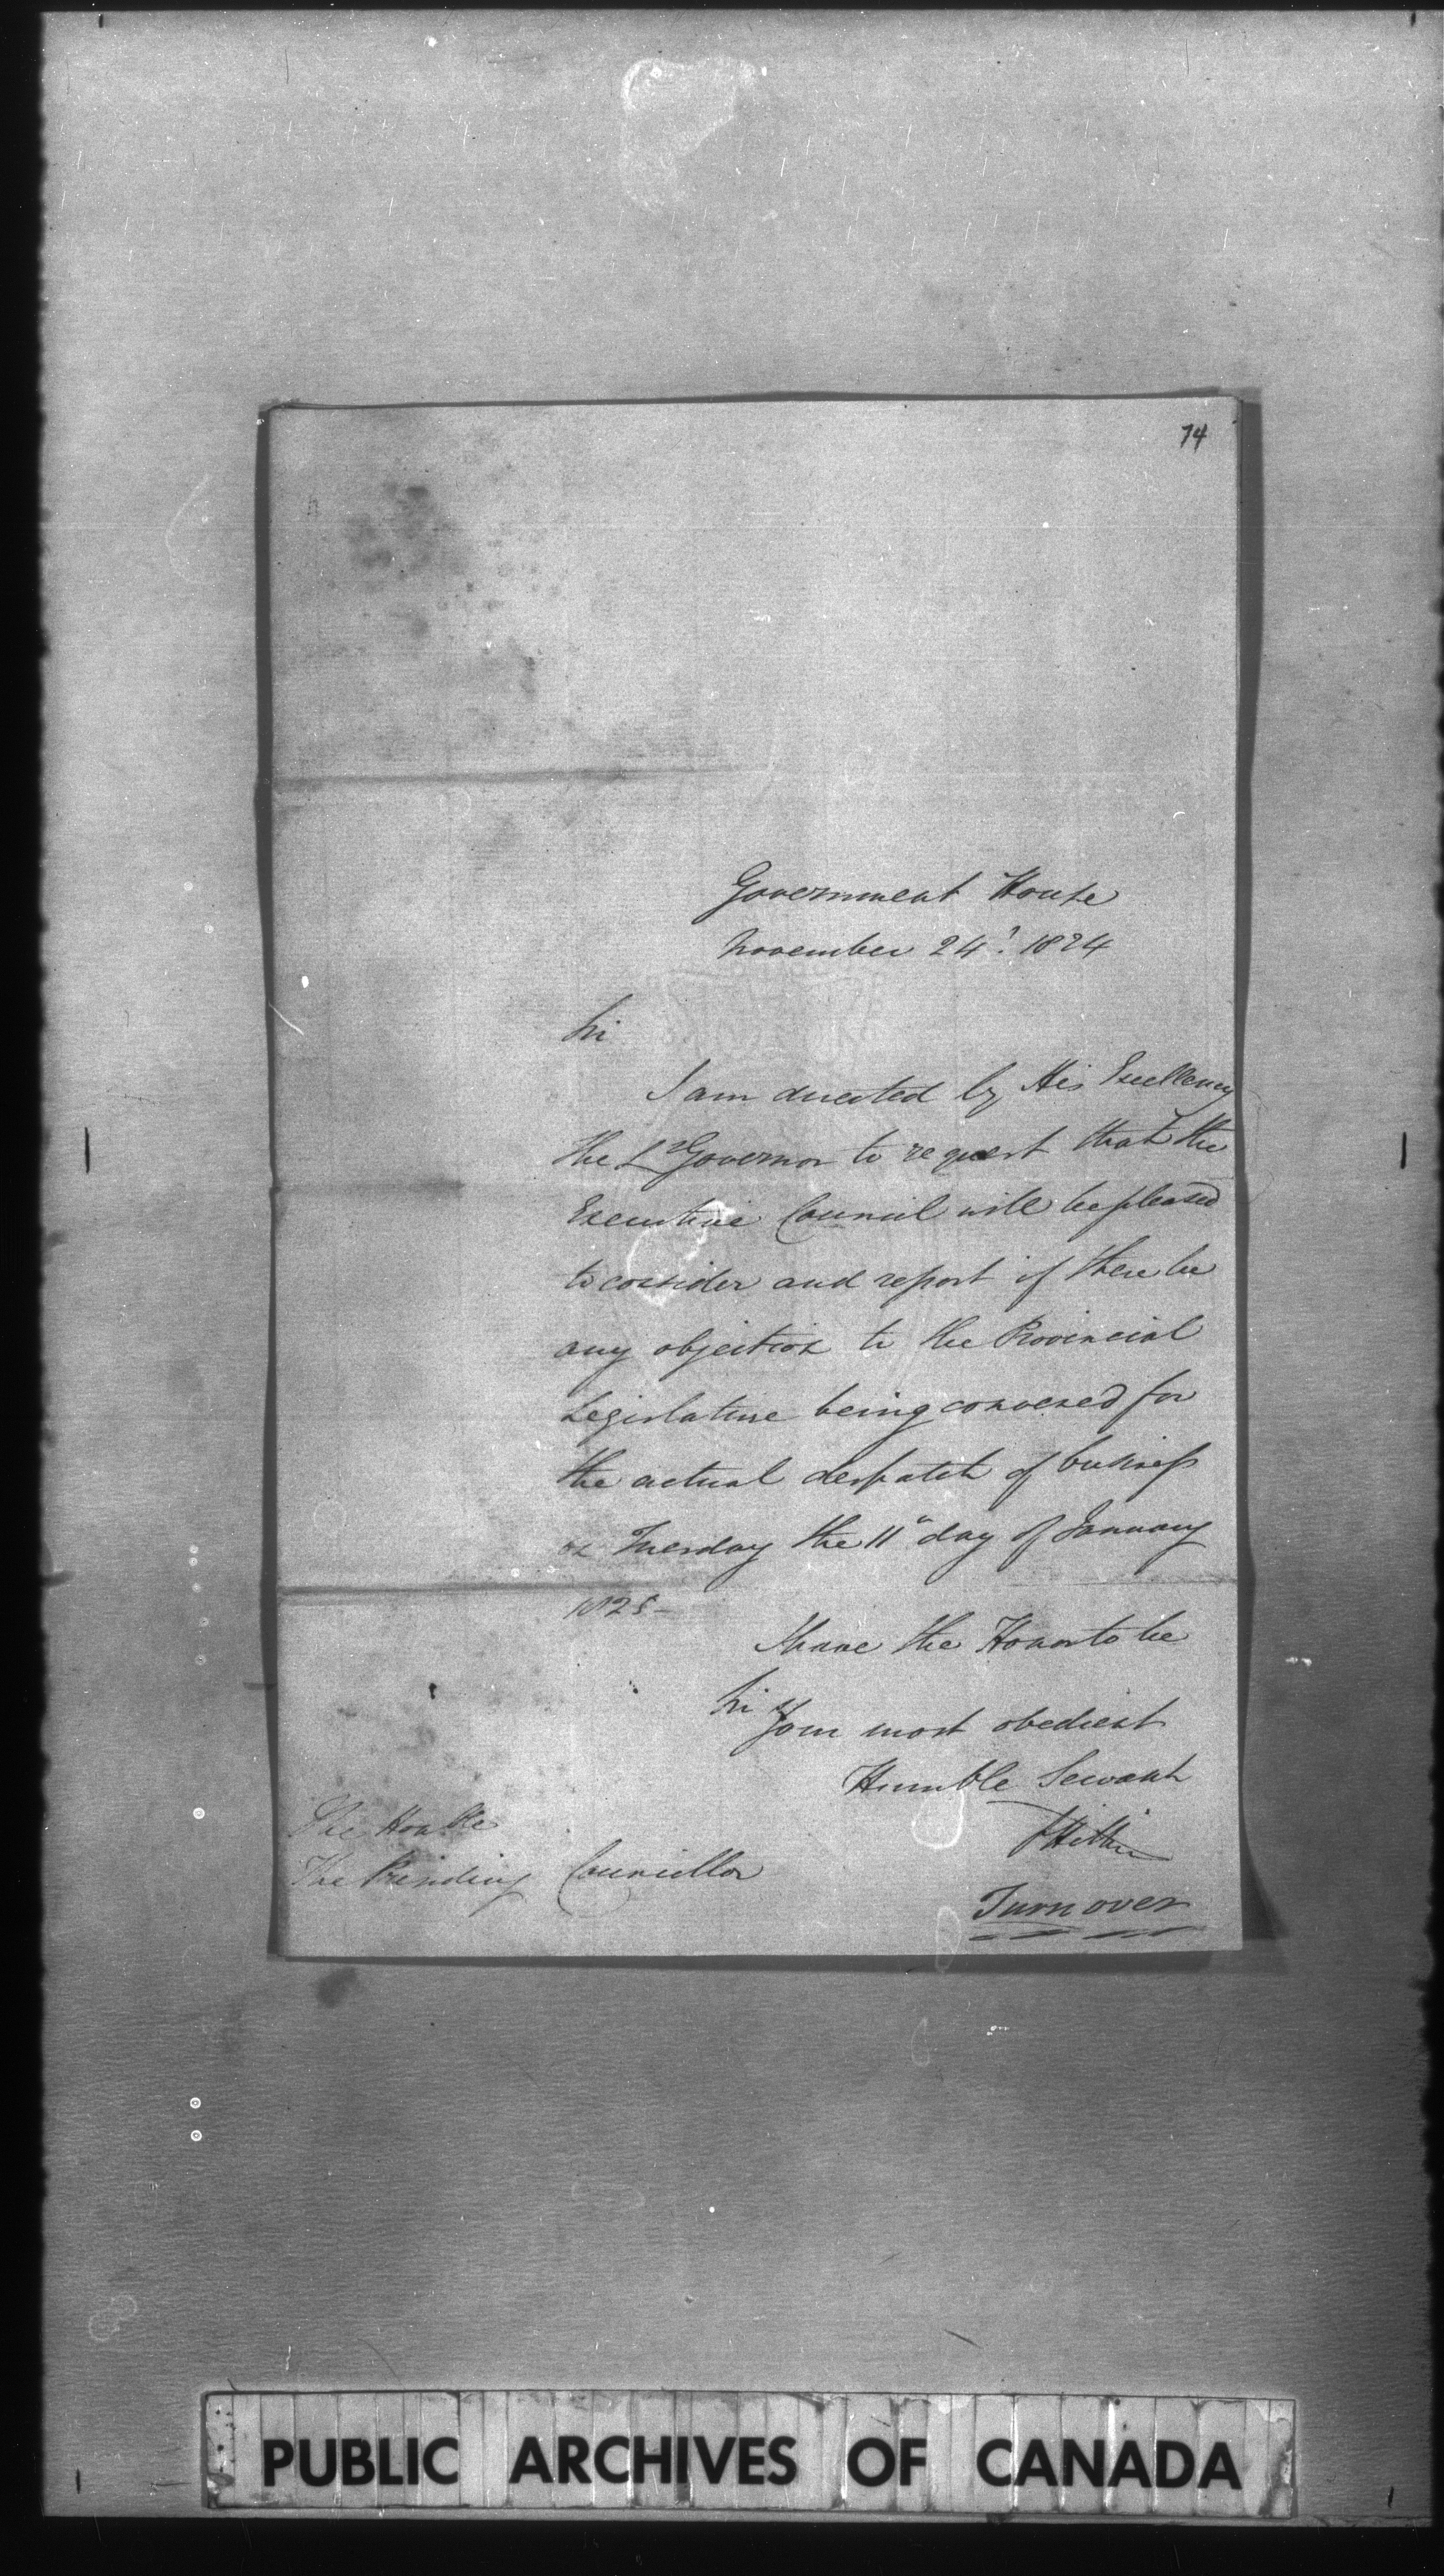 74
Government House
November 24th. 1824
Sir
I am directed by His Excellency
the Lt Governor to request that the
Executive Council will be pleased
to consider and report if there be
any objection to the Provincial
Legislature being convened for
the actual despatch of business
on Tuesday the 11th day of January
1825 -
I have the Honor to be
Sir Your most obedient
Humble Servant
The Honble
The Presiding Councillor
Turn over
PUBLIC ARCHIVES OF CANADA